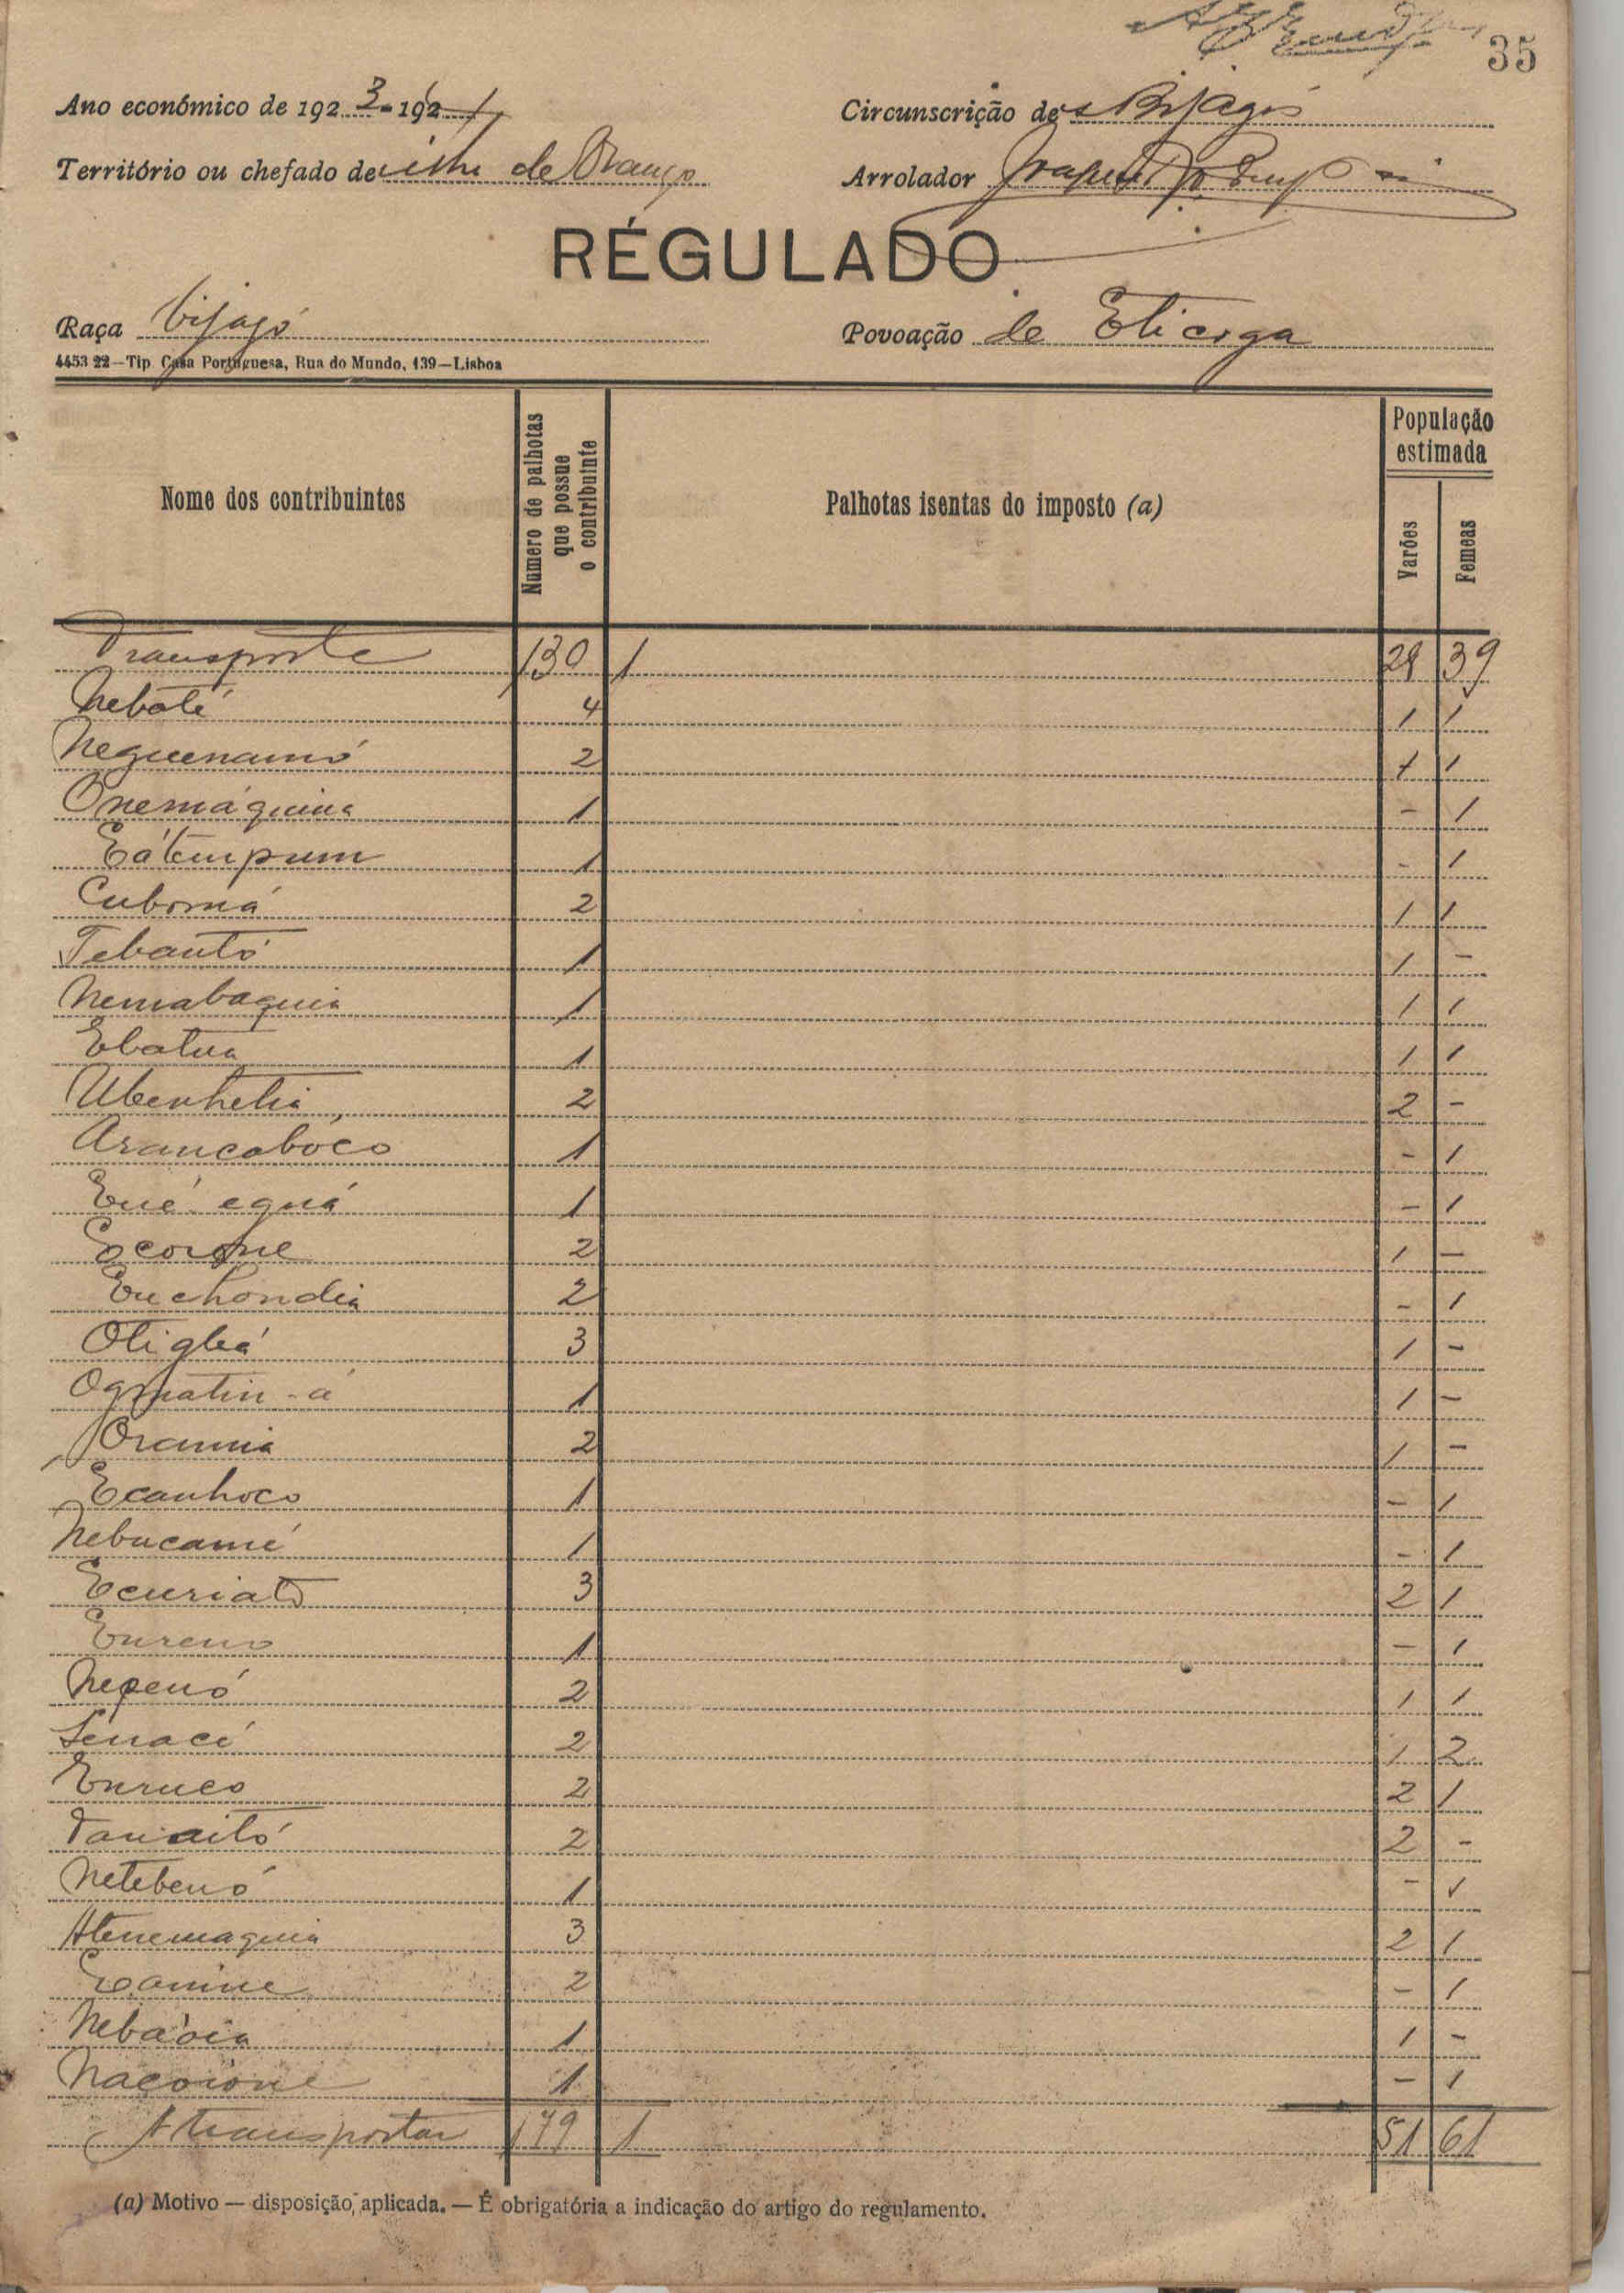 35
Ano económico de 1923-1924
Circunscrição dos Bijagós
Território ou chefado de ilha de Orango
Arrolador
RÉGULADO
Raça bijagó
Povoação de Eticoga
4453 22—Tip. Casa Portuguesa, Rua do Mundo, 139—Lisboa
Nome dos contribuintes
Numero de palhotas que possue o contribuinte
Palhotas isentas do imposto (a)
População estimada
Varões
Femeas
Transporte 130 1 28 39
Nebaté 4 1 1
Neguenamó 2 1 1
Onemáquina 1 - 1
Eátempum 1 - 1
Cubomá 2 1 1
Tebantó 1 1 -
Nemabaquia 1 1 1
Ebatua 1 1 1
Ubenhetia 2 2 -
Arancabóco 1 - 1
Eué-egná 1 - 1
2 1 -
Euchondia 2 - 1
Otigbá 3 1 -
1 1 -
Oramia 2 1 -
Ecanhoco 1 - 1
Nebucamé 1 - 1
Ecuriató 3 2 1
Eureno 1 - 1
Nepenó 2 1 1
Senacé 2 1 2
Enruco 2 2 1
Tanaitó 2 2 -
Netebenó 1 - 1
Atenemaquia 3 2 1
Eanine 2 - 1
Nebáoia 1 1 -
Nacorone 1 - 1
A transportar 179 1 51 61
(a) Motivo — disposição, aplicada. — É obrigatória a indicação do artigo do regulamento.